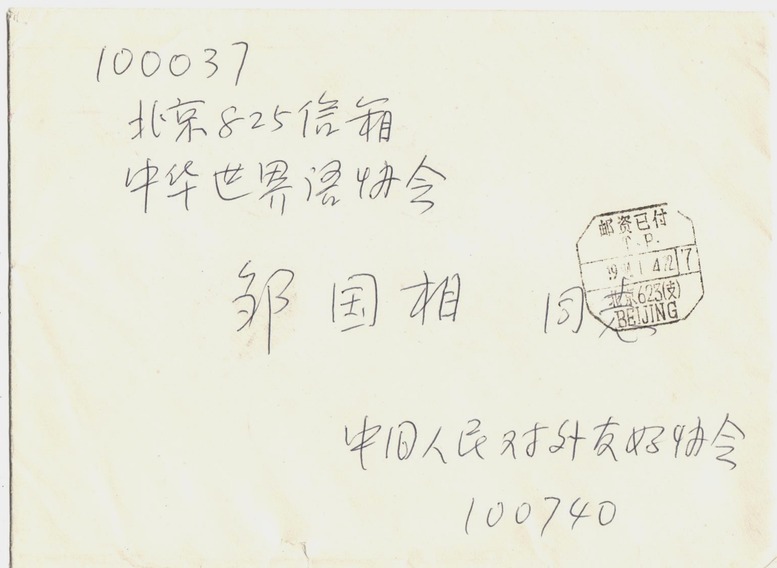 100037
北京825信箱
中华世界语协会
邹国相 同志
邮资已付
T.P.
北京623(支)
BEIJING
中国人民对外友好协会
100740